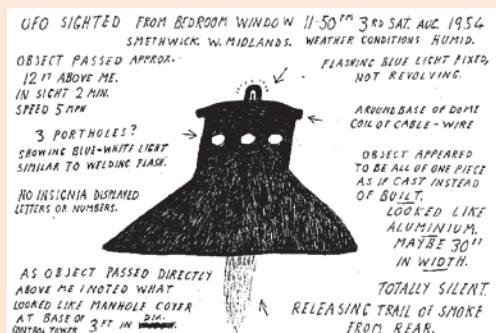 UFO SIGHTED FROM BEDROOM WINDOW 11-50PM 3RD SAT. AUG. 1954
SMETHWICK. W. MIDLANDS. WEATHER CONDITIONS HUMID.
OBJECT PASSED APPROX.
12 FT ABOVE ME.
IN SIGHT 2 MIN.
SPEED 5 MPH
3 PORTHOLES?
SHOWING BLUE-WHITE LIGHT
SIMILAR TO WELDING FLASH.
NO INSIGNIA DISPLAYED
LETTERS OR NUMBERS.
AS OBJECT PASSED DIRECTLY
ABOVE ME I NOTED WHAT
LOOKED LIKE MANHOLE COVER
AT BASE OF
CONTROL TOWER 3 FT IN DIA.
FLASHING BLUE LIGHT FIXED,
NOT REVOLVING.
AROUND BASE OF DOME
COIL OF CABLE-WIRE
OBJECT APPEARED
TO BE ALL OF ONE PIECE
AS IF CAST INSTEAD
OF BUILT.
LOOKED LIKE
ALUMINIUM.
MAYBE 30FT
IN WIDTH.
TOTALLY SILENT.
RELEASING TRAIL OF SMOKE
FROM REAR.